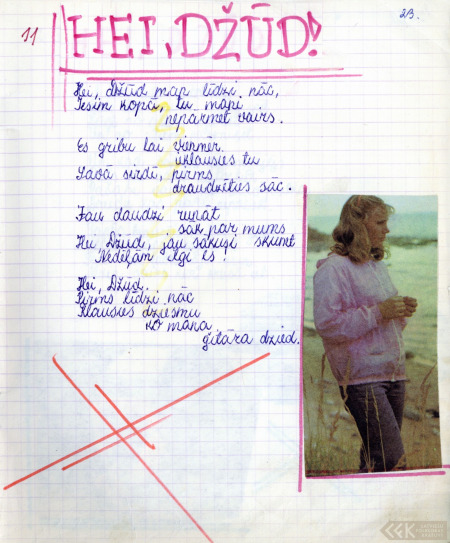 11
23.
HEI, DŽŪD!
Hei, Džūd man līdzi nāc,
Iesim kopā, tu mani
nepārmet vairs.
Es gribu lai vienmēr
ieklausies tu
Savā sirdī, pirms
draudzēties sāc.
Jau daudzi runāt
sāk par mums
Hei Džūd, jau sākusi skumt
Nedēļām ilgi es!
Hei, Džūd.
Pirms līdzi nāc
Klausies dziesmu
ko mana
ģitāra dzied.